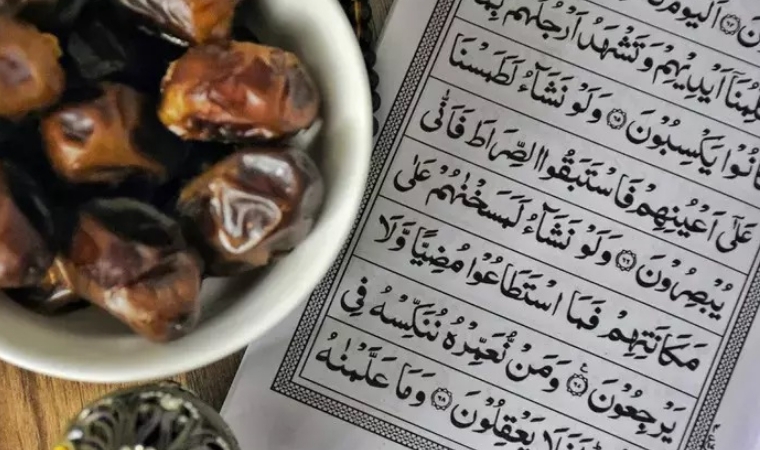 اَلْيَوْمَ
اَيْدِيْهِمْ وَتَشْهَدُ اَرْجُلُهُمْ بِمَا
انُوْا يَكْسِبُوْنَ ۝٦٥ وَلَوْ نَشَآءُ لَطَمَسْنَا
عَلٰٓى اَعْيُنِهِمْ فَاسْتَبَقُوا الصِّرَاطَ فَاَنّٰى
يُبْصِرُوْنَ ۝٦٦ وَلَوْ نَشَآءُ لَمَسَخْنٰهُمْ عَلٰى
مَكَانَتِهِمْ فَمَا اسْتَطَاعُوْا مُضِيًّا وَّلَا
يَرْجِعُوْنَ ۝٦٧ وَمَنْ نُّعَمِّرْهُ نُنَكِّسْهُ فِى
لَا يَعْقِلُوْنَ ۝٦٨ وَمَا عَلَّمْنٰهُ